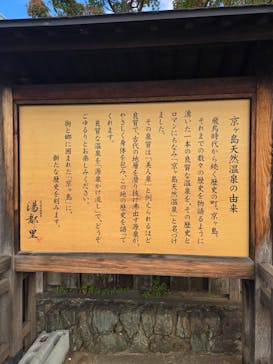 京ヶ島天然温泉の由来
飛鳥時代から続く歴史の町、京ヶ島。
それまでの数々の歴史を物語るように
湧いた一本の良質な温泉を、その歴史と
ロマンにちなみ「京ヶ島天然温泉」と名づけ
ました。
その泉質は「美人泉」と例えられるほど
良質で、古代の地層を潜り抜け赤出す源泉が、
やさしく身体を包み、この地の歴史を語って
くれます。
良質な温泉を「源泉かけ流し」で、どうぞ
ごゆるりとお楽しみください。
街と郷に囲まれた「京ヶ島」に、
新たな歴史を刻みます。
湯都里